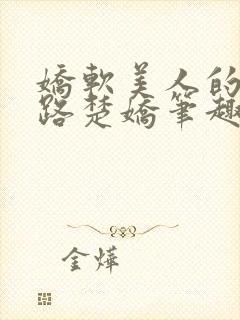 嬌軟美人的
路楚嬌筆趣
金燁